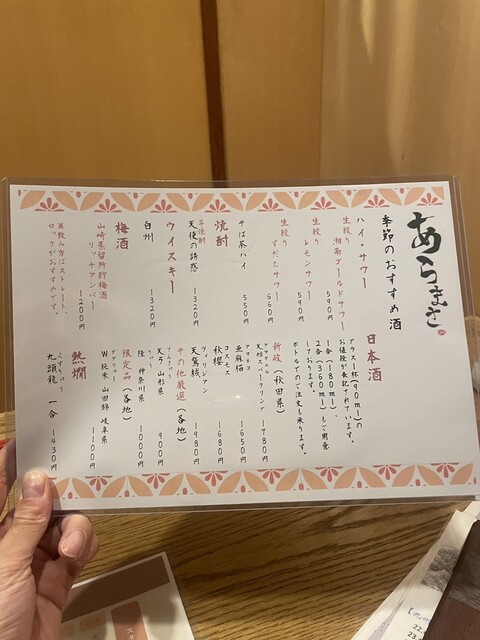 あらまさ
季節のおすすめ酒
ハイ・サワー
生絞り 湘南ゴールドサワー
590円
生絞り レモンサワー
590円
生絞り すだちサワー
560円
そば茶ハイ
550円
焼酎
芋焼酎
天使の誘惑 1320円
ウイスキー
白州 1320円
梅酒
山崎蒸留所貯蔵梅酒
リッチアンバー
1200円
※飲み方はストレート、
ロックがおすすめです。
日本酒
グラス1杯(90ml)の
お値段が表記されています。
1合(180ml)、
2合(360ml)もご用意
しております。
ボトルでのご注文も承ります。
新政(秋田県)
天蛙スパークリング 1780円
アマネコ
亜麻猫 1650円
コスモス
秋櫻 1680円
ヴィリジアン
天鷲絨 1980円
その他厳選(各地)
天弓 山形県 900円
隆 神奈川県 1000円
限定品(各地)
W 純米 山田錦 岐阜県
1100円
熱燗
くずりゅう
九頭龍 一合 1430円